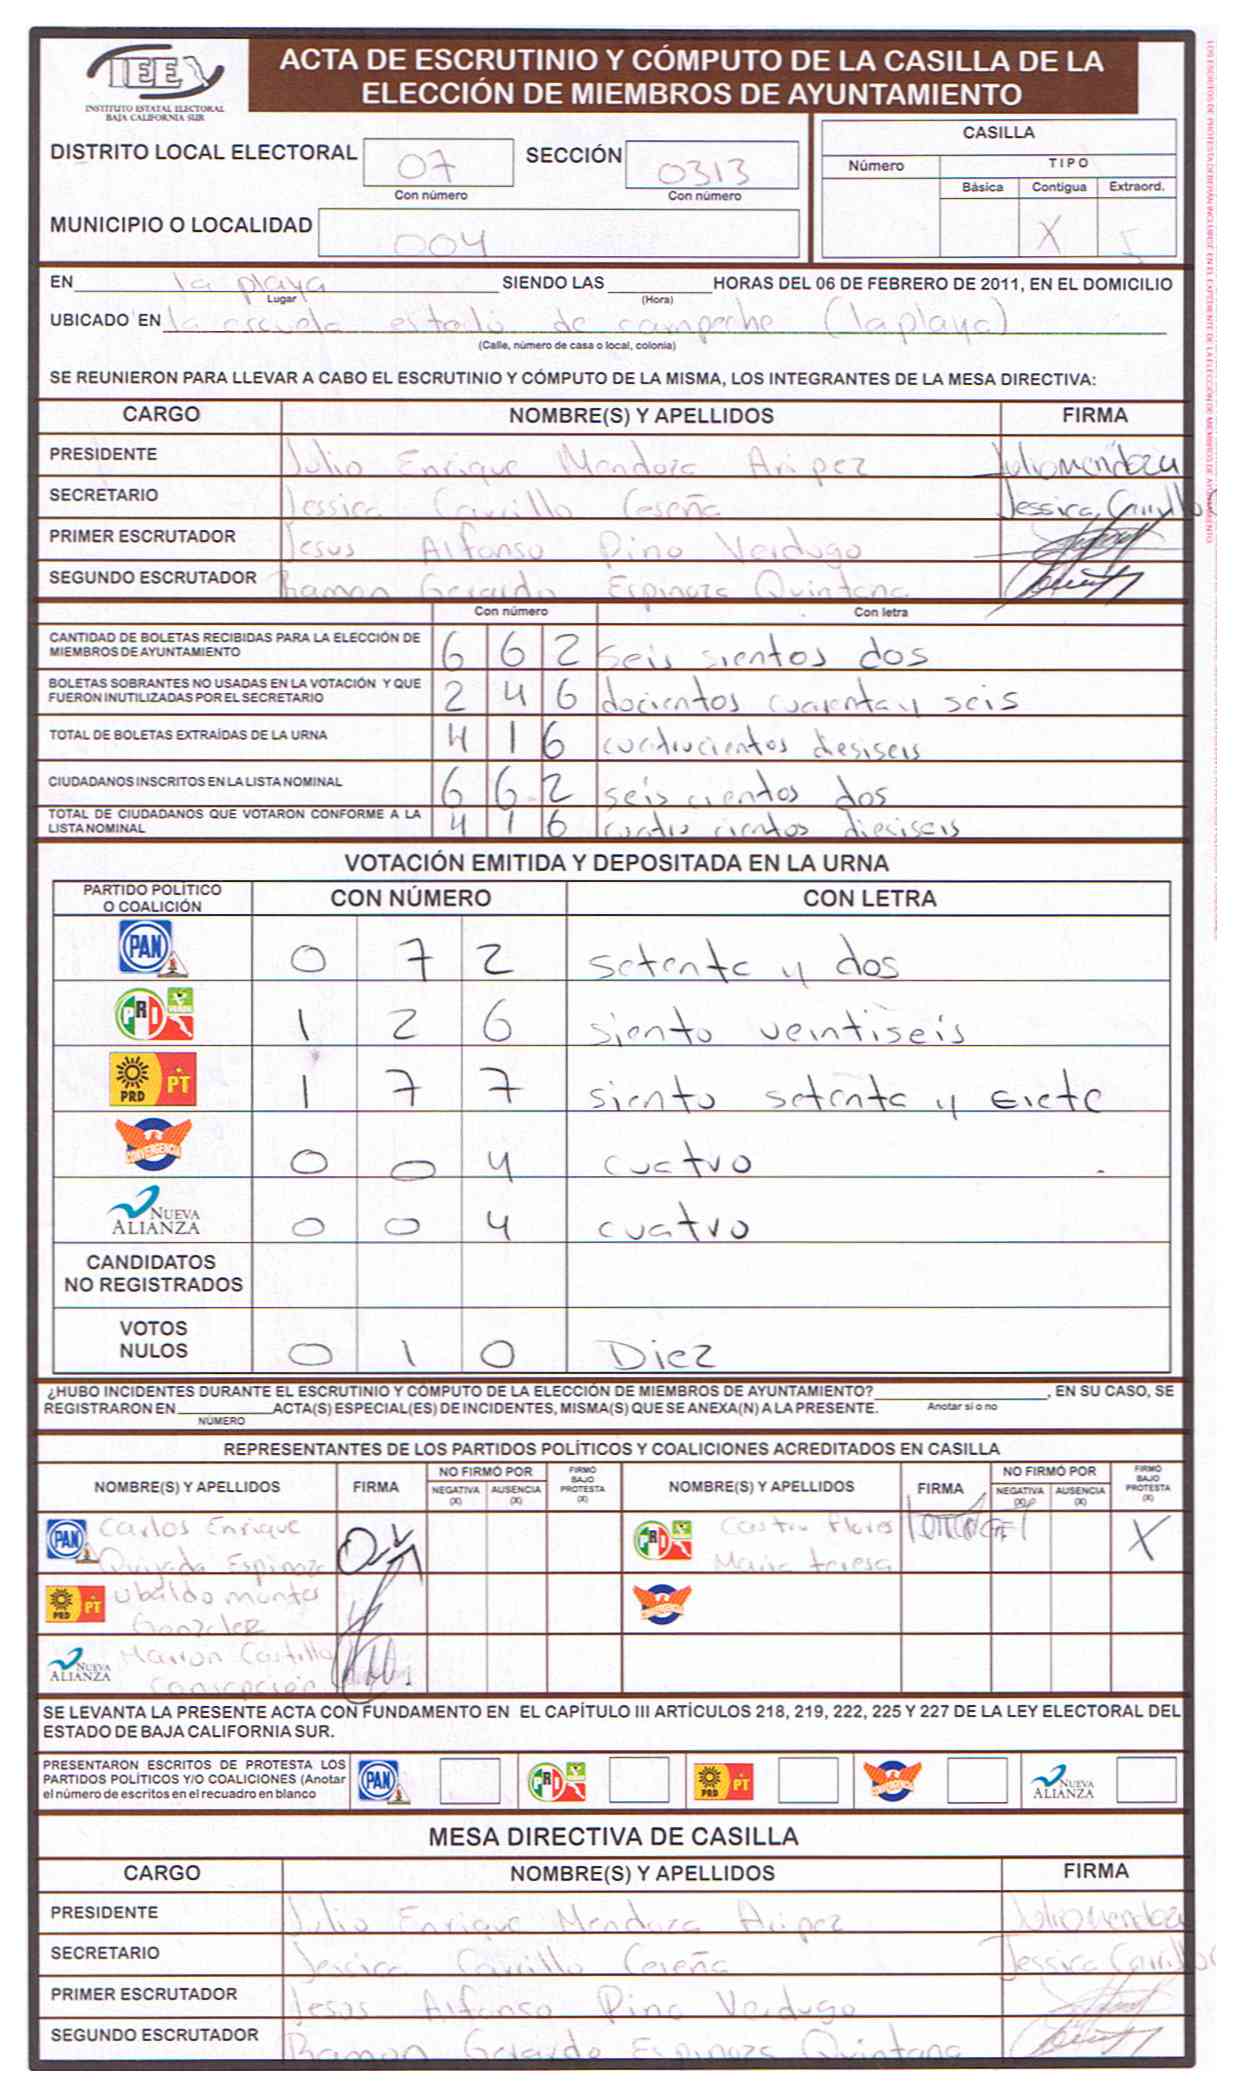 IEE
INSTITUTO ESTATAL ELECTORAL
BAJA CALIFORNIA SUR
ACTA DE ESCRUTINIO Y CÓMPUTO DE LA CASILLA DE LA
ELECCIÓN DE MIEMBROS DE AYUNTAMIENTO
DISTRITO LOCAL ELECTORAL 07 SECCIÓN 0313
Con número Con número
MUNICIPIO O LOCALIDAD 004
CASILLA
Número TIPO
Básica Contigua Extraord.
X
EN la playa SIENDO LAS HORAS DEL 06 DE FEBRERO DE 2011, EN EL DOMICILIO
Lugar (Hora)
UBICADO EN la escuela estado de campeche (la playa)
(Calle, número de casa o local, colonia)
SE REUNIERON PARA LLEVAR A CABO EL ESCRUTINIO Y CÓMPUTO DE LA MISMA, LOS INTEGRANTES DE LA MESA DIRECTIVA:
CARGO NOMBRE(S) Y APELLIDOS FIRMA
PRESIDENTE Julio Enrique Mendoza Aripez Juliomendoza
SECRETARIO Jessica Carrillo Ceseña Jessica Carrillo
PRIMER ESCRUTADOR Jesus Alfonso Pino Verdugo
SEGUNDO ESCRUTADOR Ramon Gerardo Espinoza Quintana
Con número Con letra
CANTIDAD DE BOLETAS RECIBIDAS PARA LA ELECCIÓN DE
MIEMBROS DE AYUNTAMIENTO 6 6 2 seis sientos dos
BOLETAS SOBRANTES NO USADAS EN LA VOTACIÓN Y QUE
FUERON INUTILIZADAS POR EL SECRETARIO 2 4 6 docientos cuarenta y seis
TOTAL DE BOLETAS EXTRAÍDAS DE LA URNA 4 1 6 cuatrocientos diesiseis
CIUDADANOS INSCRITOS EN LA LISTA NOMINAL 6 6 2 seis cientos dos
TOTAL DE CIUDADANOS QUE VOTARON CONFORME A LA
LISTA NOMINAL 4 1 6 cuatro cientos dieciseis
VOTACIÓN EMITIDA Y DEPOSITADA EN LA URNA
PARTIDO POLÍTICO
O COALICIÓN CON NÚMERO CON LETRA
PAN 0 7 2 setenta y dos
PRI VERDE 1 2 6 siento veintiseis
PRD PT 1 7 7 siento setenta y siete
CONVERGENCIA 0 0 4 cuatro
NUEVA ALIANZA 0 0 4 cuatro
CANDIDATOS
NO REGISTRADOS
VOTOS
NULOS 0 1 0 Diez
¿HUBO INCIDENTES DURANTE EL ESCRUTINIO Y CÓMPUTO DE LA ELECCIÓN DE MIEMBROS DE AYUNTAMIENTO? , EN SU CASO, SE
REGISTRARON EN ACTA(S) ESPECIAL(ES) DE INCIDENTES, MISMA(S) QUE SE ANEXA(N) A LA PRESENTE. Anotar si o no
NÚMERO
REPRESENTANTES DE LOS PARTIDOS POLÍTICOS Y COALICIONES ACREDITADOS EN CASILLA
NOMBRE(S) Y APELLIDOS FIRMA NO FIRMÓ POR NEGATIVA (X) AUSENCIA (X) FIRMÓ BAJO PROTESTA (X) NOMBRE(S) Y APELLIDOS FIRMA NO FIRMÓ POR NEGATIVA (X) AUSENCIA (X) FIRMÓ BAJO PROTESTA (X)
PAN Carlos Enrique PRI Castro Flores X
Quijada Espinoza Maria teresa
PRD PT Ubaldo montes CONVERGENCIA
Gonzalez
NUEVA ALIANZA Marron Castillo
Concepcion
SE LEVANTA LA PRESENTE ACTA CON FUNDAMENTO EN EL CAPÍTULO III ARTÍCULOS 218, 219, 222, 225 Y 227 DE LA LEY ELECTORAL DEL
ESTADO DE BAJA CALIFORNIA SUR.
PRESENTARON ESCRITOS DE PROTESTA LOS
PARTIDOS POLÍTICOS Y/O COALICIONES (Anotar
el número de escritos en el recuadro en blanco
PAN PRI PRD PT CONVERGENCIA NUEVA ALIANZA
MESA DIRECTIVA DE CASILLA
CARGO NOMBRE(S) Y APELLIDOS FIRMA
PRESIDENTE Julio Enrique Mendoza Aripez Juliomendoza
SECRETARIO Jessica Carrillo Ceseña Jessica Carrillo
PRIMER ESCRUTADOR Jesus Alfonso Pino Verdugo
SEGUNDO ESCRUTADOR Ramon Gerardo Espinoza Quintana